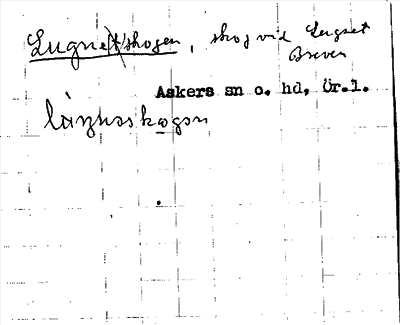 Lugne(t)skogen, skog vid Lugnet
Breven
Askers sn o. hd, Ör.l.
lùŋnsskogən